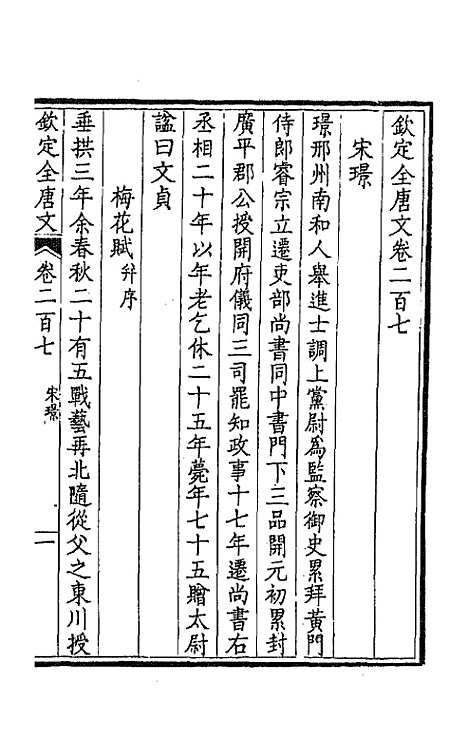 欽定全唐文卷二百七
宋璟
璟邢州南和人舉進士調上黨尉為監察御史累拜黃門
侍郎睿宗立遷吏部尚書同中書門下三品開元初累封
廣平郡公授開府儀同三司罷知政事十七年遷尚書右
丞相二十年以年老乞休二十五年薨年七十五贈太尉
諡曰文貞
梅花賦并序
垂拱三年余春秋二十有五戰藝再北隨從父之東川授
欽定全唐文
卷二百七
宋璟
一